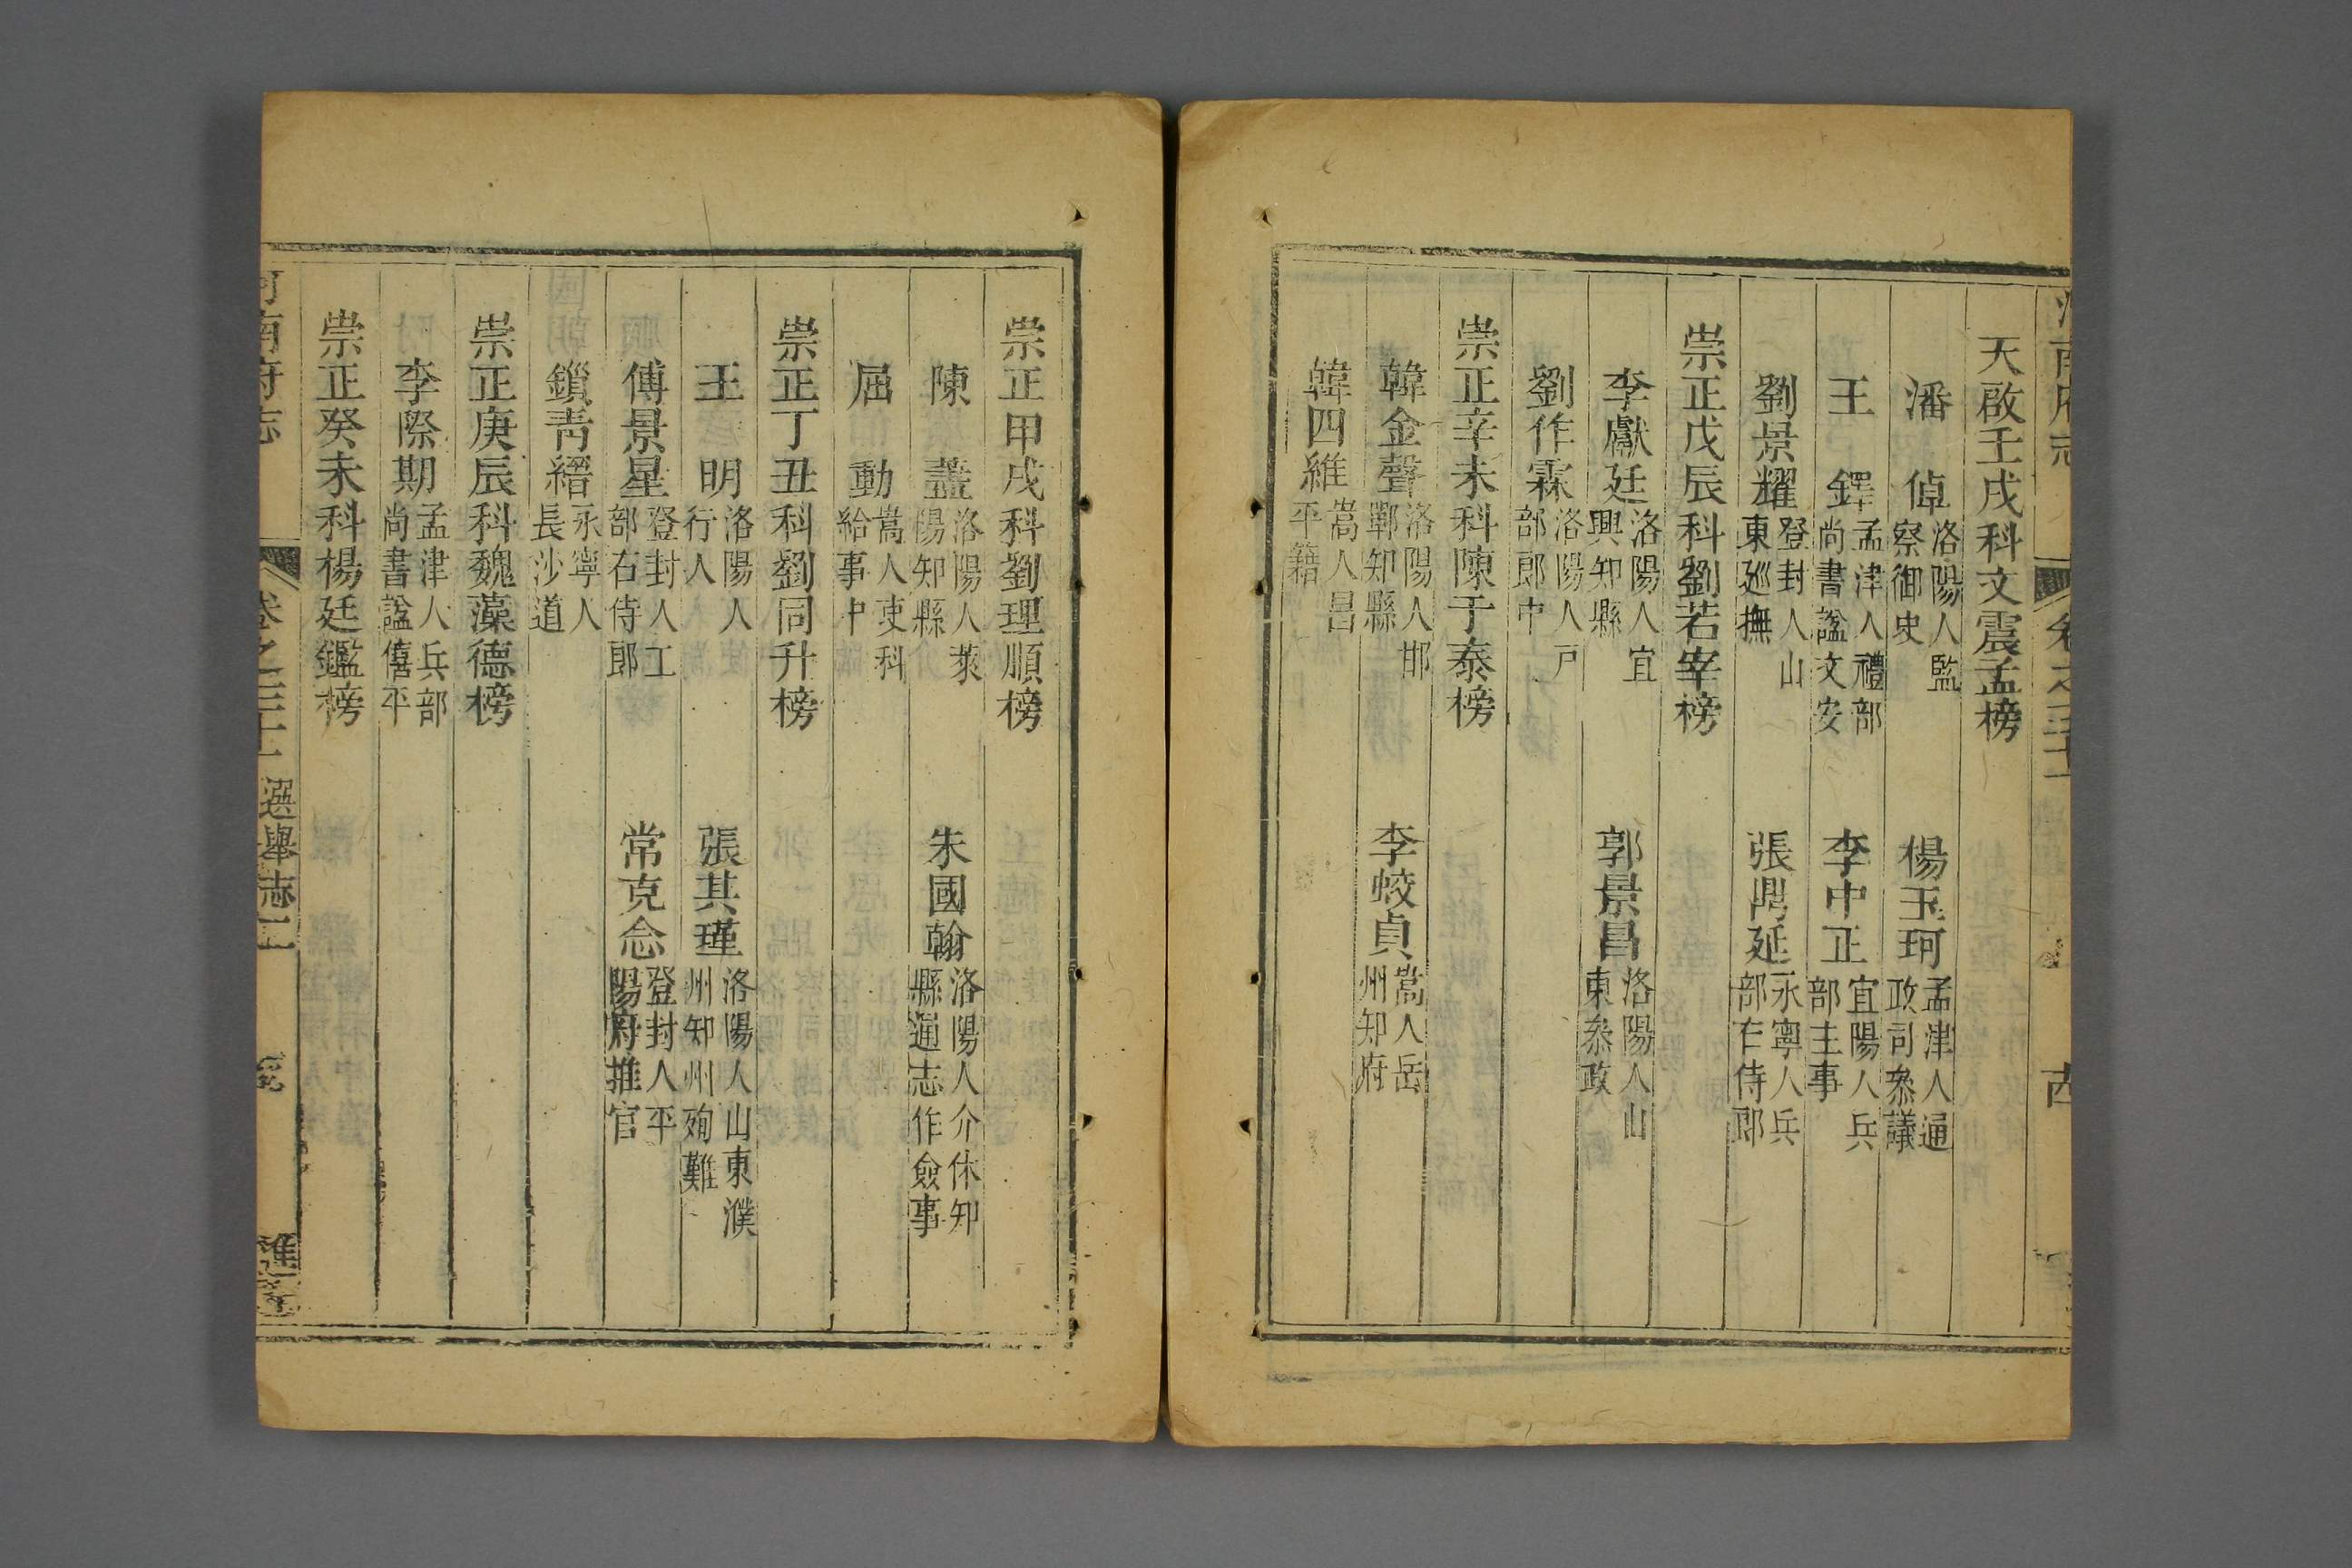 天啟壬戌科文震孟榜
潘 倬 洛陽人監察御史 楊玉珂 孟津人通政司叅議
王 鐸 孟津人禮部尚書諡文安 李中正 宜陽人兵部主事
劉景耀 登封人山東廵撫 張鼎延 永寧人兵部右侍郎
崇正戊辰科劉若宰榜
李獻廷 洛陽人宜興知縣 郭景昌 洛陽人山東叅政
劉作霖 洛陽人戶部郎中
崇正辛未科陳于泰榜
韓金聲 洛陽人邯鄲知縣 李蛟貞 嵩人岳州知府
韓四維 嵩人昌平籍
崇正甲戌科劉理順榜
陳 藎 洛陽人萊陽知縣 朱國翰 洛陽人介休知縣通志作僉事
屈 動 嵩人吏科給事中
崇正丁丑科劉同升榜
王 明 洛陽人行人 張其瑾 洛陽人山東濮州知州殉難
傅景星 登封人工部右侍郎 常克念 登封人平陽府推官
鎖青縉 永寧人長沙道
崇正庚辰科魏藻德榜
李際期 孟津人兵部尚書諡僖平
崇正癸未科楊廷鑑榜
河南府志 卷之三十一 選舉志二